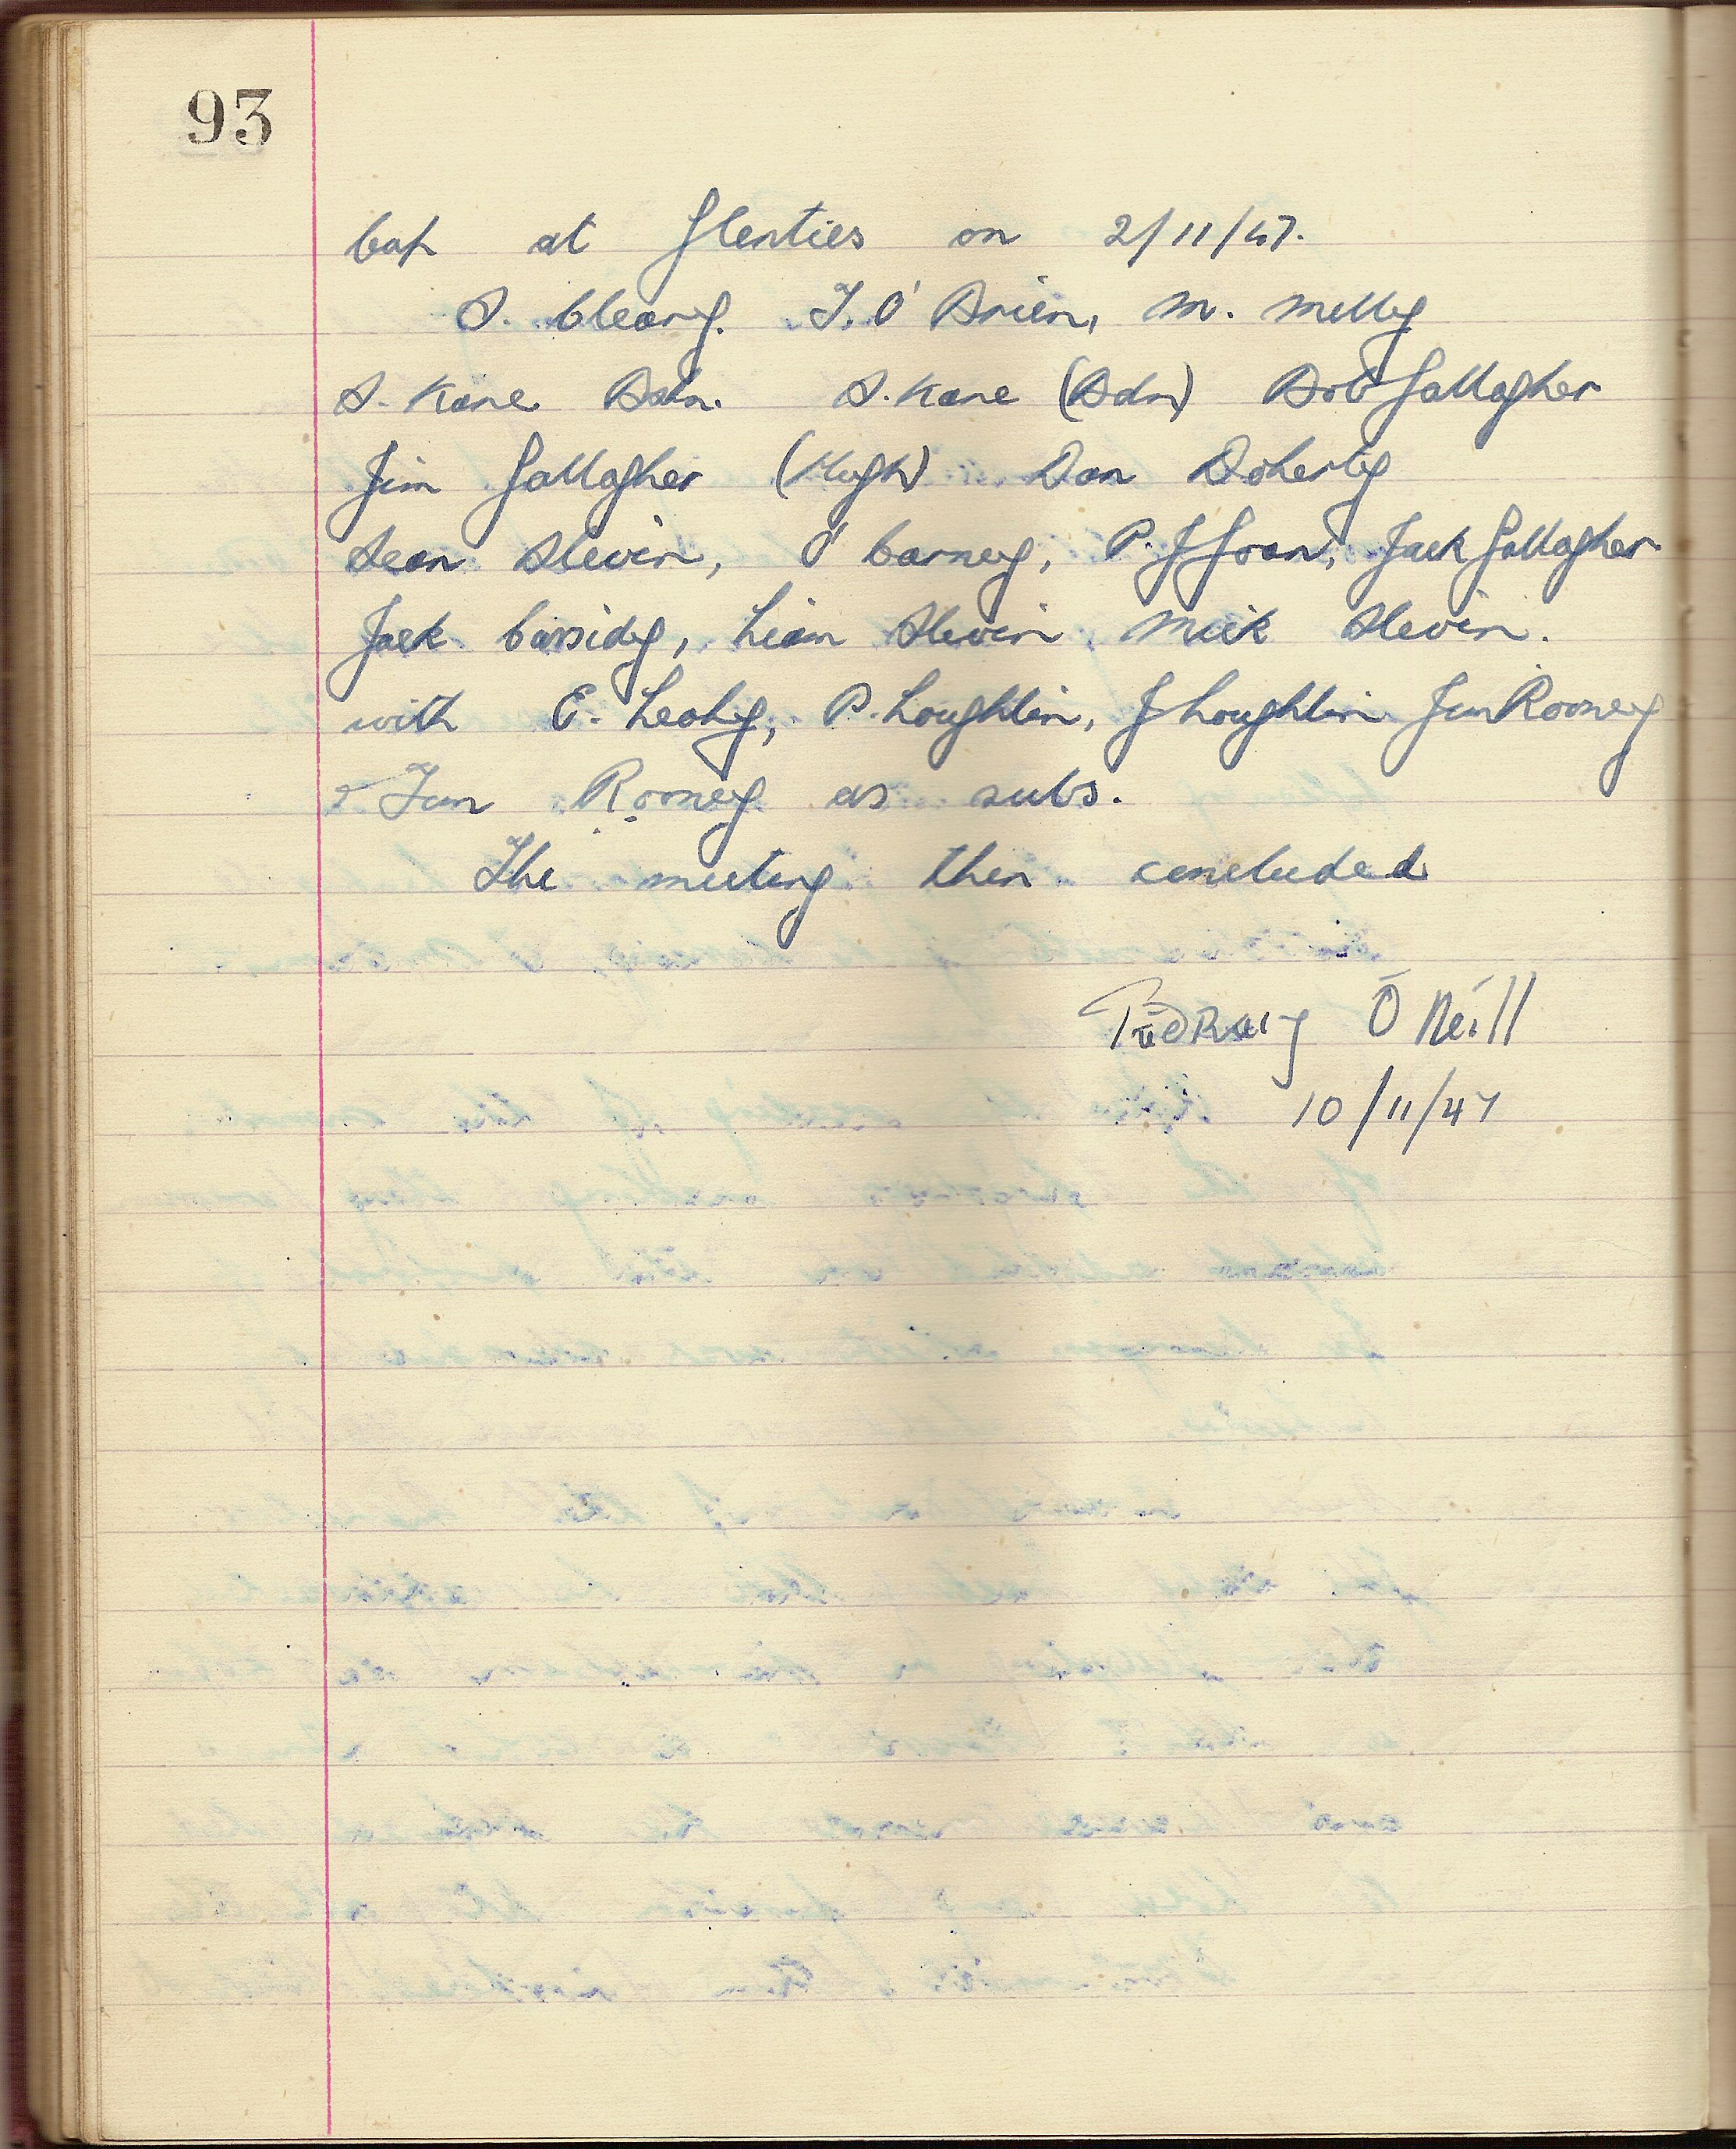 93
Cap at Glenties on 2/11/47.
S. Cleary. T. O'Brien, M. Melly
S. Kane Bdn. S. Kane (Bdn) Bob Gallagher
Jim Gallagher (Hugh) Dan Doherty
Sean Slevin, O'Carney, P. J Goan, Jack Gallagher
Jack Cassidy, Liam Slevin, Mick Slevin.
with E. Leahy, P. Loughlin, J Loughlin Jim Rooney
& Tim Rooney as subs.
The meeting then concluded
Pádraig Ó Néill
10/11/47